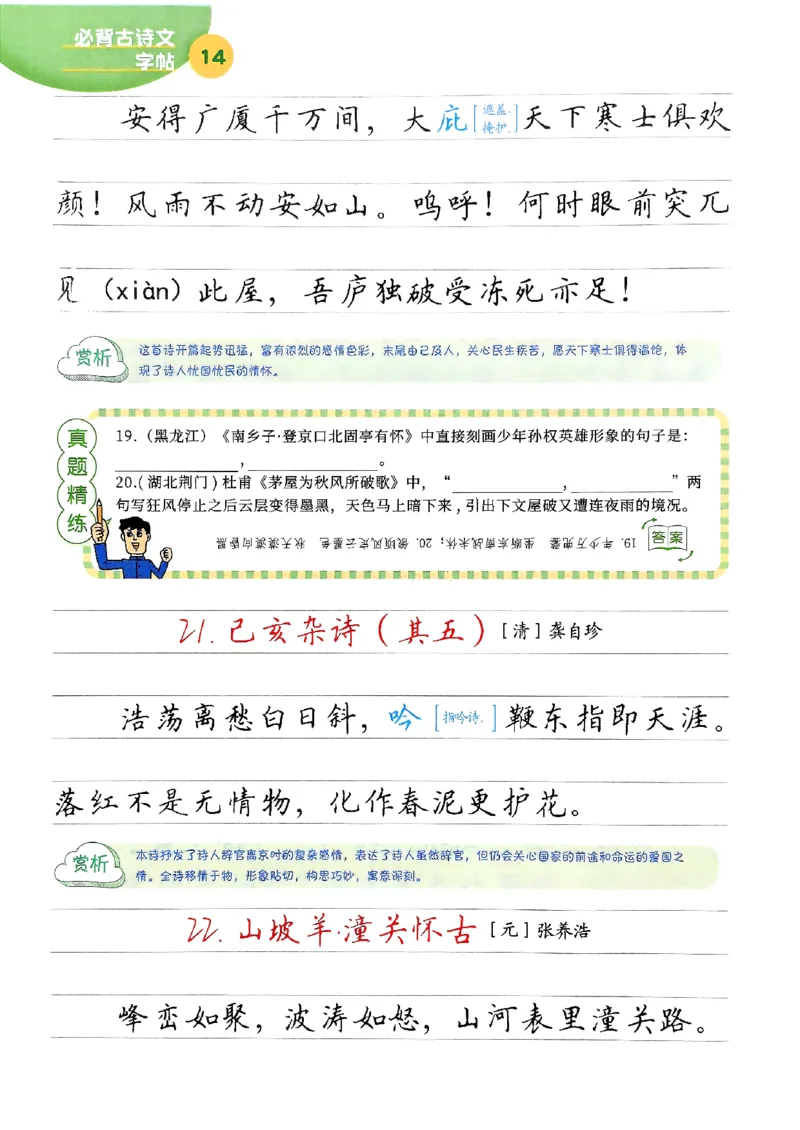 必背古诗文
字帖
14
安得广厦千万间，大庇[遮盖、掩护。]天下寒士俱欢
颜！风雨不动安如山。呜呼！何时眼前突兀
见（xiàn）此屋，吾庐独破受冻死亦足！
赏析
这首诗开篇起势迅猛，富有浓烈的感情色彩，末尾由己及人，关心民生疾苦，愿天下寒士俱得温饱，体
现了诗人忧国忧民的情怀。
真题精练
19.（黑龙江）《南乡子·登京口北固亭有怀》中直接刻画少年孙权英雄形象的句子是：
____________，____________。
20.(湖北荆门)杜甫《茅屋为秋风所破歌》中，“____________，____________”两
句写狂风停止之后云层变得墨黑，天色马上暗下来，引出下文屋破又遭连夜雨的境况。
答案
19. 年少万兜鍪 坐断东南战未休；20. 俄顷风定云墨色 秋天漠漠向昏黑
21. 已亥杂诗（其五）[清]龚自珍
浩荡离愁白日斜，吟[指吟诗。]鞭东指即天涯。
落红不是无情物，化作春泥更护花。
赏析
本诗抒发了诗人辞官离京时的复杂感情，表达了诗人虽然辞官，但仍会关心国家的前途和命运的爱国之
情。全诗移情于物，形象贴切，构思巧妙，寓意深刻。
22. 山坡羊·潼关怀古[元]张养浩
峰峦如聚，波涛如怒，山河表里潼关路。